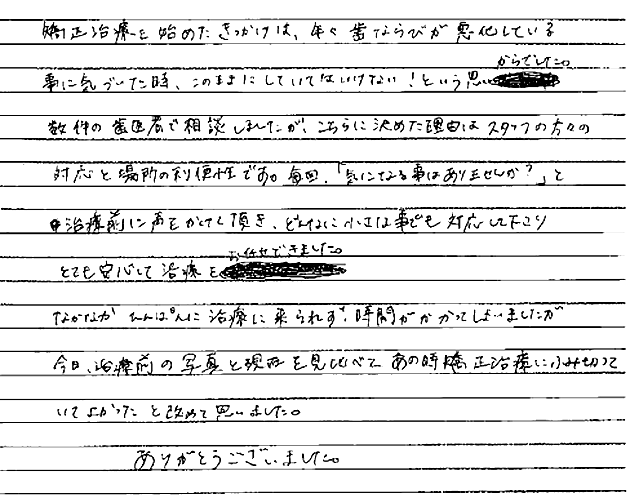 矯正治療を始めたきっかけは、年々歯ならびが悪化している
事に気づいた時、このままにしていてはいけない！という思い
からでした。
数件の歯医者で相談しましたが、こちらに決めた理由はスタッフの方々の
対応と場所の利便性です。毎回、「気になる事はありませんか？」と
治療前に声をかけて頂き、どんなに小さな事でも対応して下さり
とても安心して治療を
お任せできました。
なかなか ひんぱんに治療に来られず、時間がかかってしまいましたが
今日、治療前の写真と現在を見比べて あの時矯正治療にふみ切って
いてよかったと改めて思いました。
ありがとうございました。